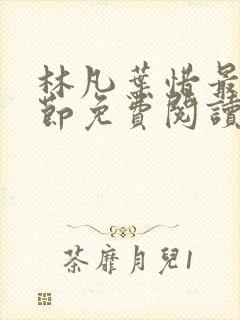 林凡葉惜最
節免費閱讀
荼靡月兒1